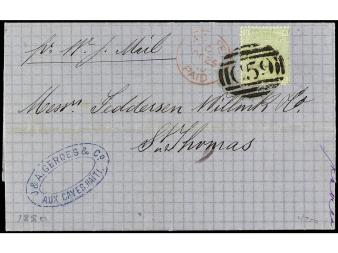 pr W. I. Mail
PAID
C59
Messrs Feddersen Willink & Co
St Thomas
J & A. GERDES & Co
AUX CAYES HAITI.
1880